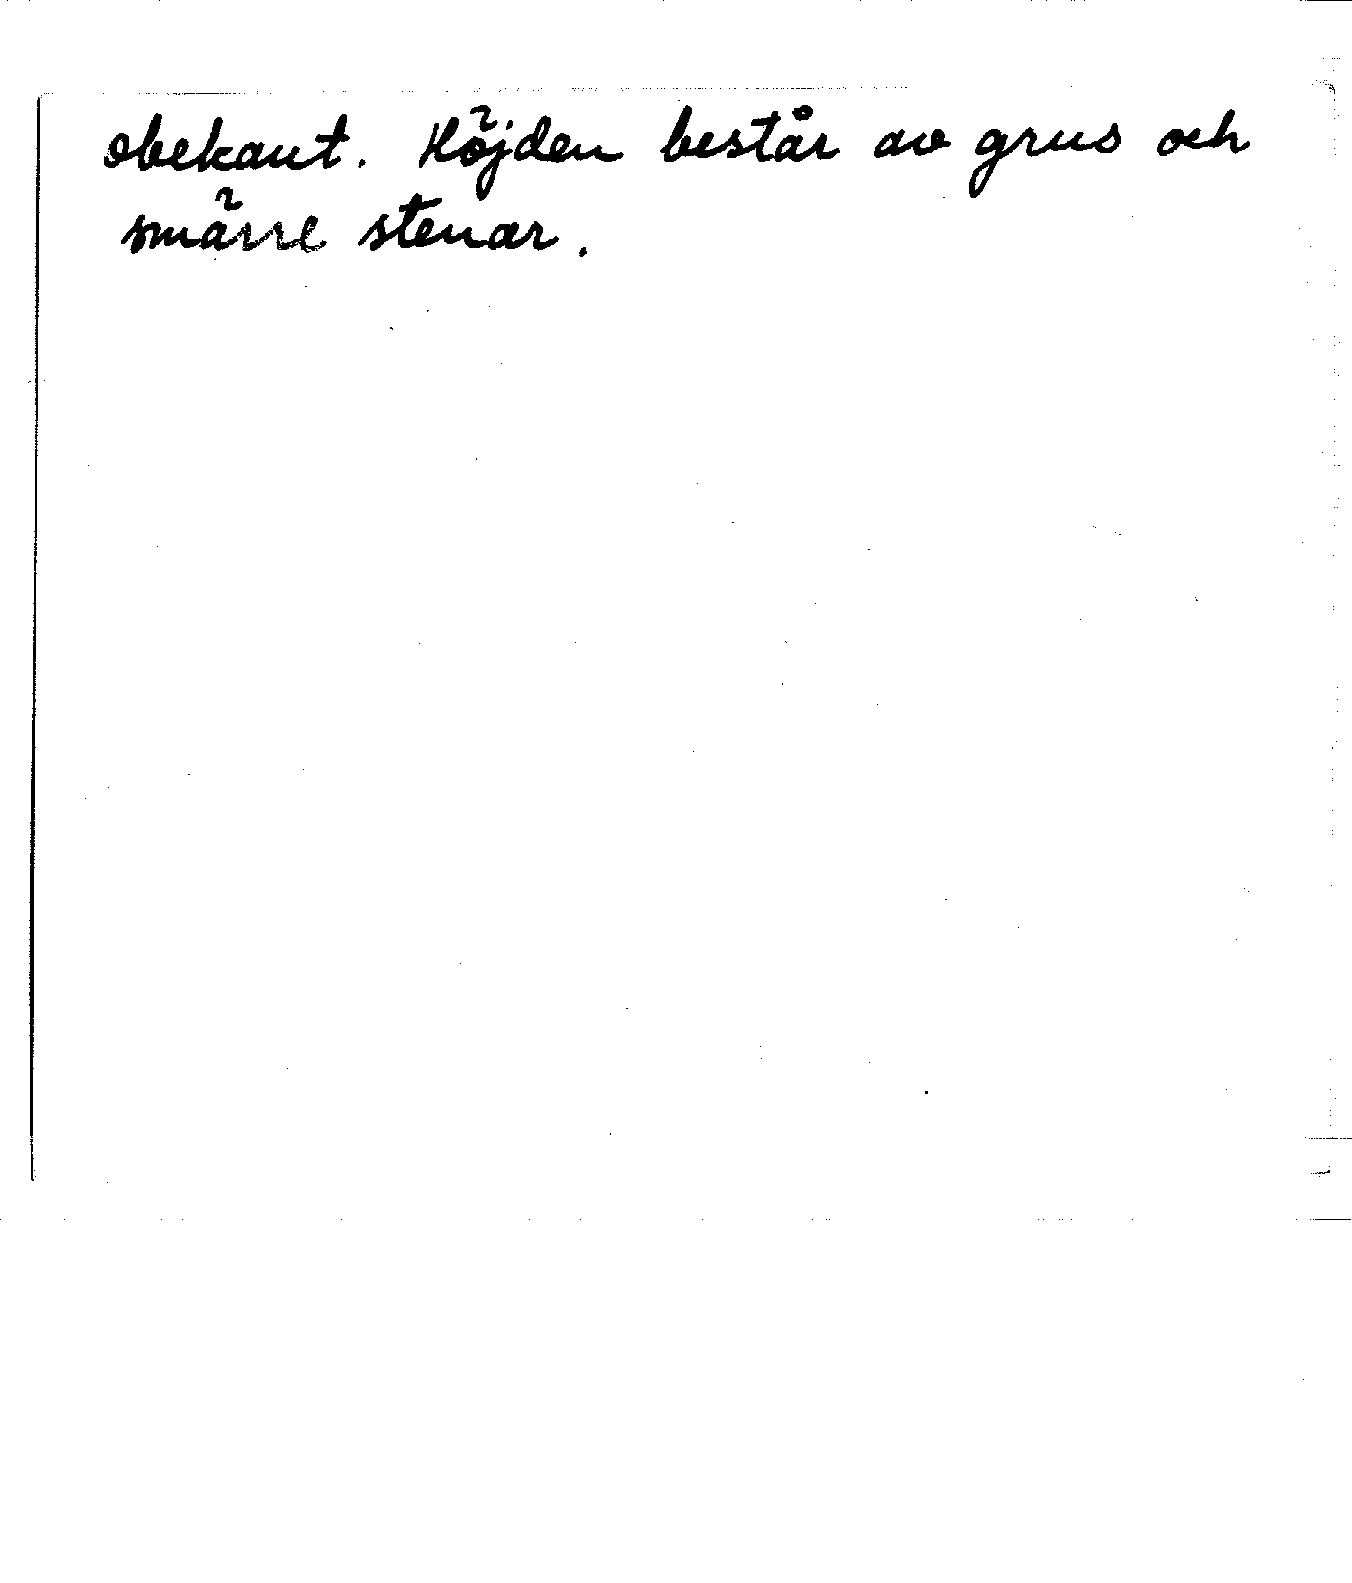 obekant. Höjden består av grus och
smärre stenar.